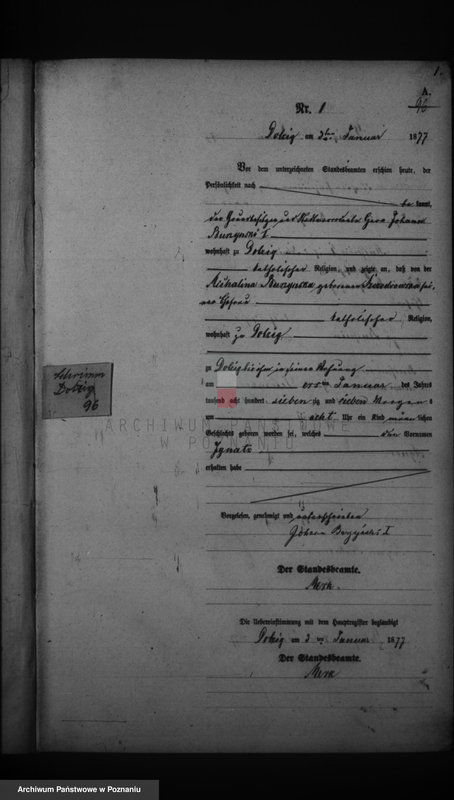 1.
A.
96
Nr. 1
Dolzig am 3ten Januar 1877
Vor dem unterzeichneten Standesbeamten erschien heute, der
Persönlichkeit nach
be kannt,
der Hausbesitzer und Herr Johann
I
wohnhaft zu Dolzig
katholischer Religion, und zeigte an, daß von der
Michalina geborenen sei-
ner Ehefrau
katholischer Religion,
wohnhaft zu Dolzig
zu Dolzig in seiner Wohnung
am ersten Januar des Jahres
tausend acht hundert sieben zig und sieben Morgens
um acht Uhr ein Kind männlichen
Geschlechts geboren worden sei, welches den Vornamen
Ignatz
erhalten habe
Vorgelesen, genehmigt und unterschrieben
Johann I
Der Standesbeamte.
Merk
Die Uebereinstimmung mit dem Hauptregister beglaubigt
Dolzig am 3 ten Januar 1877
Der Standesbeamte.
Merk
Schrimm
Dolzig
96
ARCHIWUM PAŃSTWOWE
W POZNANIU
Archiwum Państwowe w Poznaniu